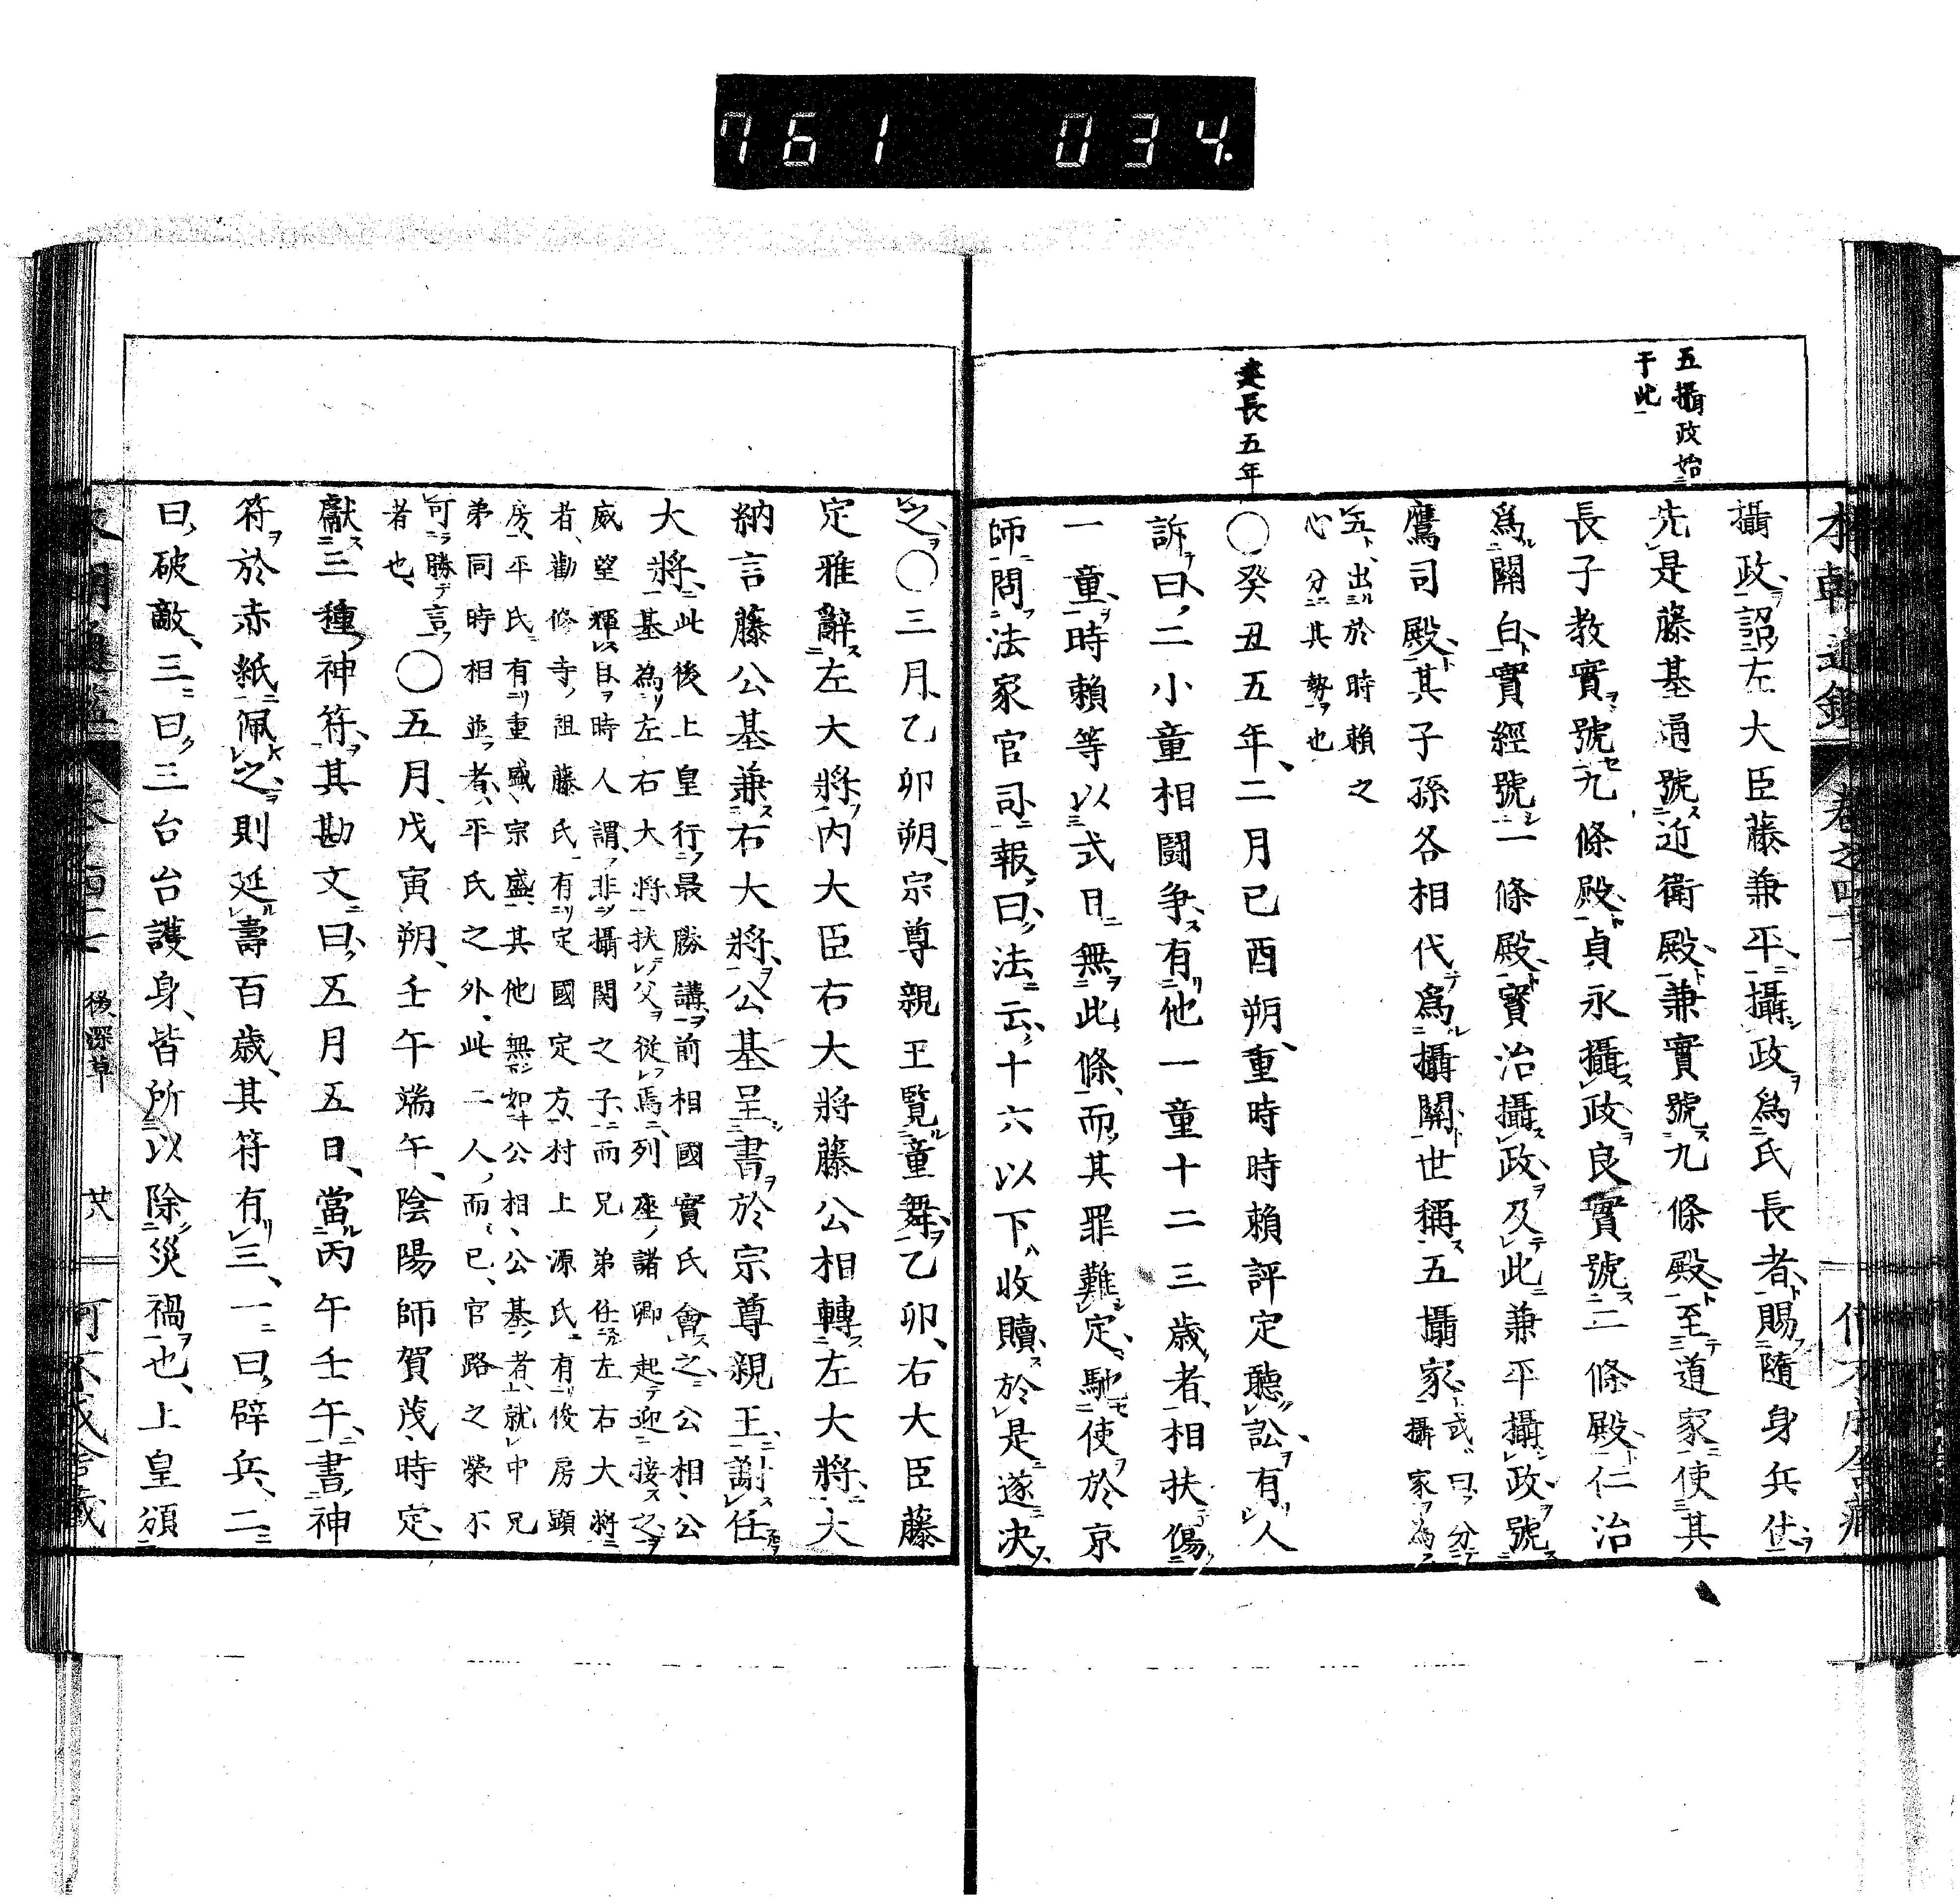 761 034.
五攝政始
于此
攝政詔左大臣藤兼平攝政爲氏長者賜隨身兵仗
先是藤基通號近衛殿兼實號九條殿至道家使其
長子教實號九條殿貞永攝政良實號二條殿仁治
爲關白實經號一條殿寶治攝政及此兼平攝政號
鷹司殿其子孫各相代爲攝關世稱五攝家或曰分攝家爲
五出於時賴之
心分其勢也
建長五年
○癸丑五年二月己酉朔重時時賴評定聽訟有人
訴曰二小童相鬪爭有他一童十二三歲者相扶傷
一童時賴等以式目無此條而其罪難定馳使於京
師問法家官司報曰法云十六以下收贖於是遂決
之○三月乙卯朔宗尊親王覽童舞乙卯右大臣藤
定雅辭左大將內大臣右大將藤公相轉左大將大
納言藤公基兼右大將公基呈書於宗尊親王謝任
大將此後上皇行最勝講前相國實氏會之公相公
基爲左右大將扶父從焉列座諸卿起迎接之
威望輝目時人謂非攝関之子而兄弟任左右大將
者勸修寺祖藤氏有定國定方村上源氏有俊房顯
房平氏有重盛宗盛其他無如公相公基者就中兄
弟同時相並者平氏之外此二人而已官路之榮不
可勝言
者也○五月戊寅朔壬午端午陰陽師賀茂時定
獻三種神符其勘文曰五月五日當丙午壬午書神
符於赤紙佩之則延壽百歲其符有三一曰辟兵二
曰破敵三曰三台台護身皆所以除災禍也上皇頒
後深草